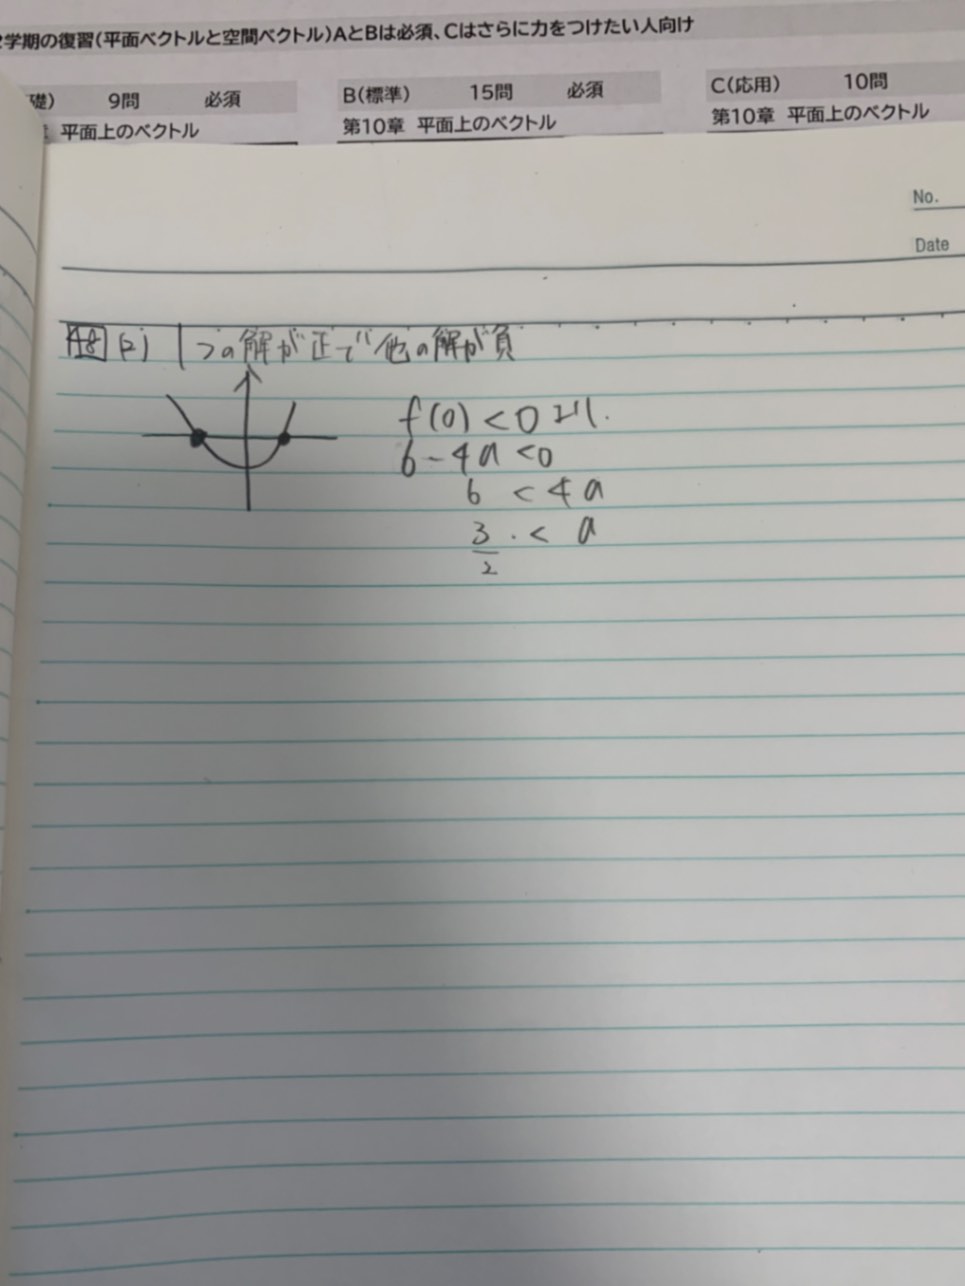 2学期の復習(平面ベクトルと空間ベクトル)AとBは必須、Cはさらに力をつけたい人向け
礎) 9問 必須
B(標準) 15問 必須
C(応用) 10問
章 平面上のベクトル
第10章 平面上のベクトル
第10章 平面上のベクトル
No.
Date
48 (2) 1つの解が正で他の解が負
f(0) < 0 より.
6 - 4a < 0
6 < 4a
3/2 < a